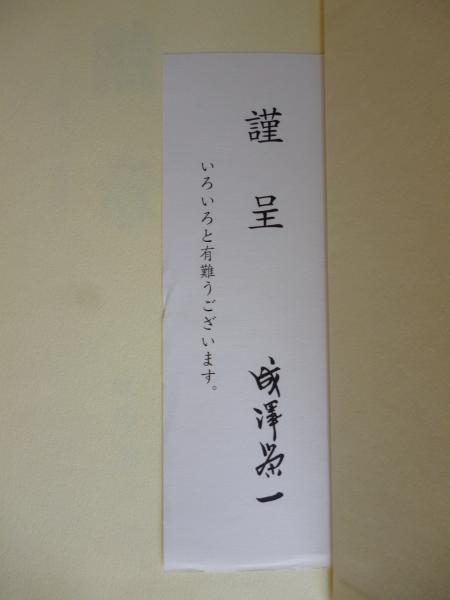 謹呈
成澤榮一
いろいろと有難うございます。